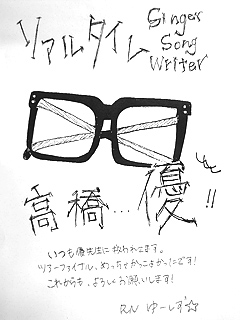 リアルタイム
Singer
Song
Writer
高橋…優!!
いつも優先生に救われてます。
ツアーファイナル、めっちゃかっこよかったです!
これからも、よろしくお願いします!
RN ゆーしず☆